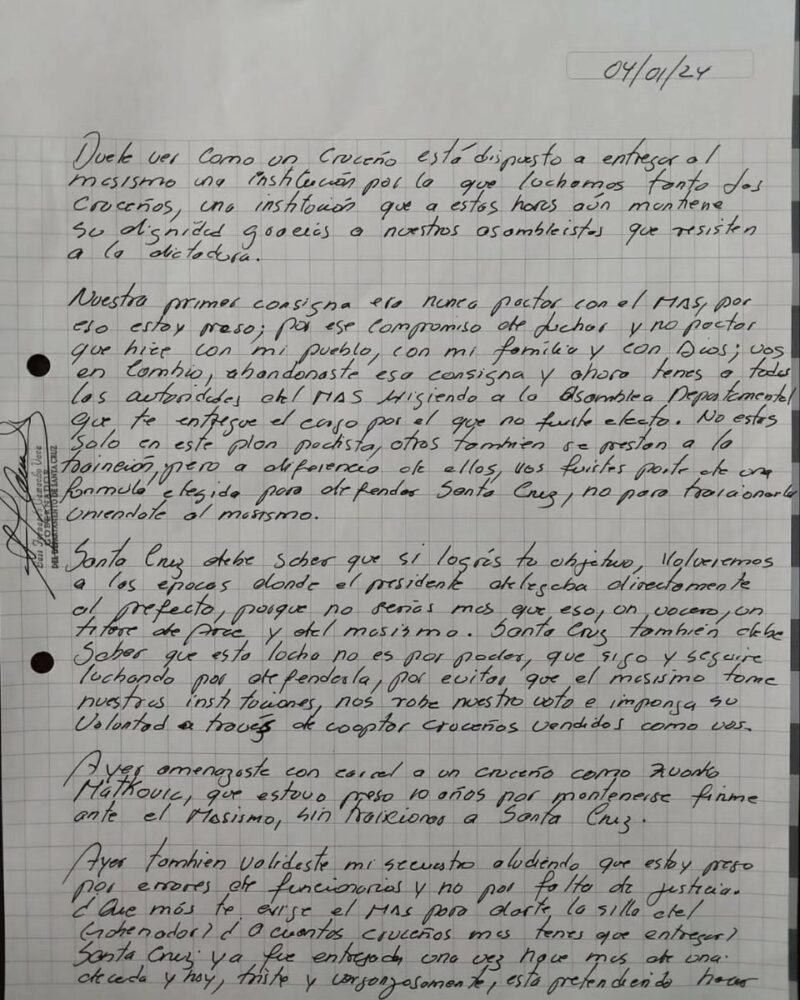 04/01/24
Duele ver como un Cruceño está dispuesto a entregar al
masismo una institución por la que luchamos tanto los
Cruceños, una institución que a estas horas aún mantiene
su dignidad gracias a nuestros asambleistas que resisten
a la dictadura.
Nuestra primer consigna era nunca pactar con el MAS, por
eso estoy preso; por ese compromiso de luchar y no pactar
que hice con mi pueblo, con mi familia y con Dios; vos
en cambio, abandonaste esa consigna y ahora tenes a todas
las autoridades del MAS exigiendo a la Asamblea Departamental
que te entregue el cargo por el que no fuiste electo. No estas
solo en este plan pactista, otros tambien se prestan a la
traición, pero a diferencia de ellos, vos fuistes parte de una
formula elegida para defender Santa Cruz, no para traicionarla
uniendote al masismo.
Santa Cruz debe saber que si logras tu objetivo, volveremos
a las epocas donde el presidente delegaba directamente
al prefecto, porque no serias mas que eso, un vocero, un
titere de Arce y del masismo. Santa Cruz también debe
saber que esta lucha no es por poder, que sigo y seguire
luchando por defenderla, por evitar que el masismo tome
nuestras instituciones, nos robe nuestro voto e imponga su
voluntad a través de cooptar cruceños vendidos como vos.
Ayer amenazaste con carcel a un cruceño como Zvonko
Matkovic, que estuvo preso 10 años por mantenerse firme
ante el Masismo, sin traicionar a Santa Cruz.
Ayer tambien validaste mi secuestro aludiendo que estoy preso
por errores de funcionarios y no por falta de justicia.
¿Que más te exige el MAS para darte la silla del
Gobernador? ¿A cuantos cruceños mas tenes que entregar?
Santa Cruz ya fue entregada una vez hace mas de una
decada y hoy, triste y vergonzosamente, esta pretendiendo hacer
GOBERNADOR
DEL DEPARTAMENTO DE SANTA CRUZ